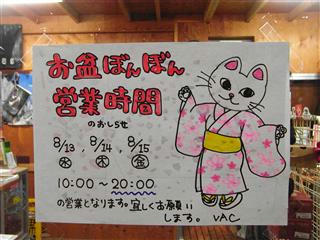 お盆ぼんぼん
営業時間
のおしらせ
8/13, 8/14, 8/15
水 木 金
10:00~20:00
の営業となります。宜しくお願い
します。 VAC